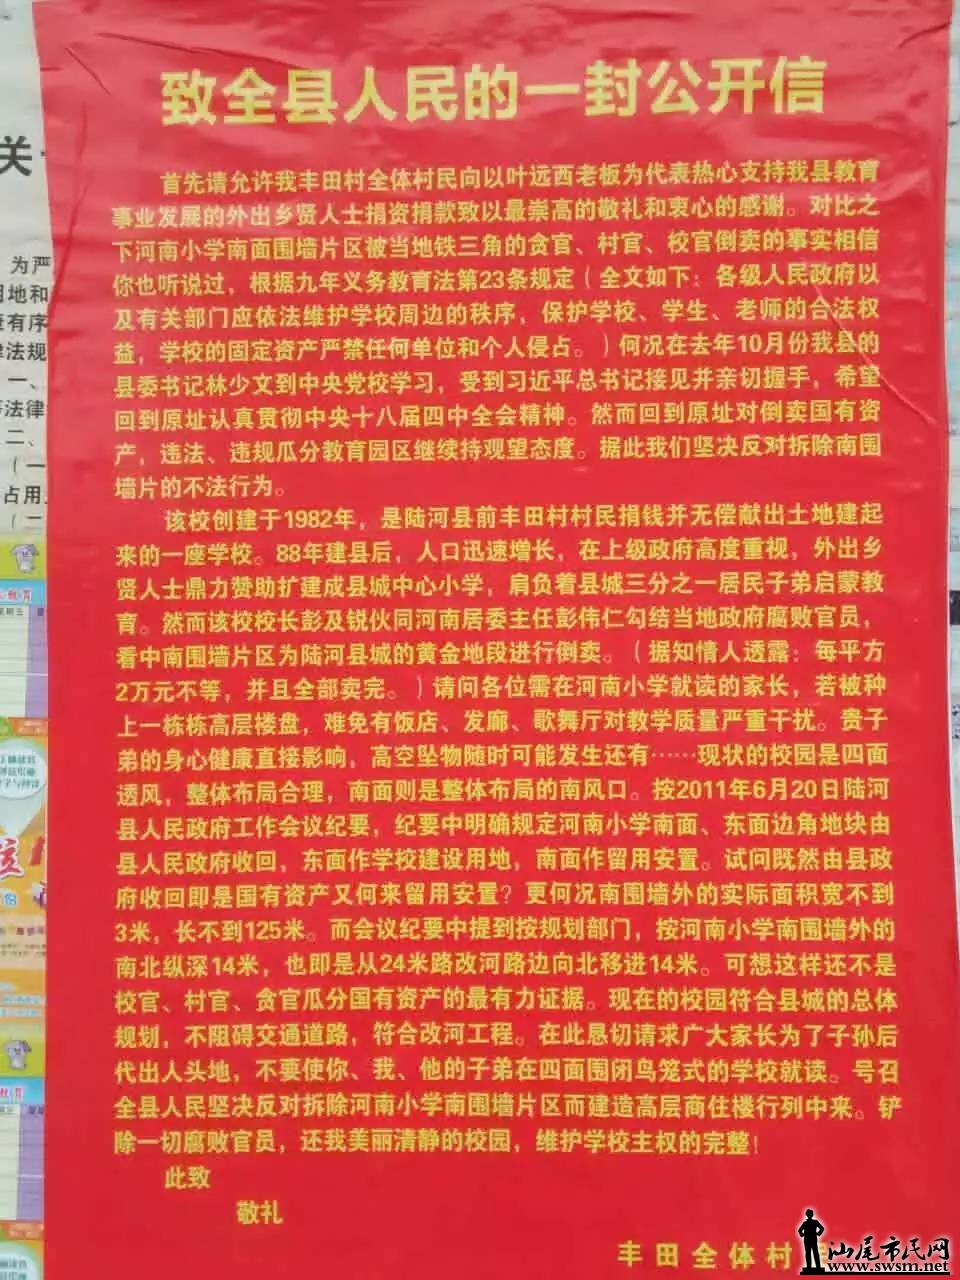 致全县人民的一封公开信
首先请允许我丰田村全体村民向以叶远西老板为代表热心支持我县教育
事业发展的外出乡贤人士捐资捐款致以最崇高的敬礼和衷心的感谢。对比之
下河南小学南面围墙片区被当地铁三角的贪官、村官、校官倒卖的事实相信
你也听说过，根据九年义务教育法第23条规定（全文如下：各级人民政府以
及有关部门应依法维护学校周边的秩序，保护学校、学生、老师的合法权
益，学校的固定资产严禁任何单位和个人侵占。）何况在去年10月份我县的
县委书记林少文到中央党校学习，受到习近平总书记接见并亲切握手，希望
回到原址认真贯彻中央十八届四中全会精神。然而回到原址对倒卖国有资
产，违法、违规瓜分教育园区继续持观望态度。据此我们坚决反对拆除南围
墙片的不法行为。
该校创建于1982年，是陆河县前丰田村村民捐钱并无偿献出土地建起
来的一座学校。88年建县后，人口迅速增长，在上级政府高度重视，外出乡
贤人士鼎力赞助扩建成县城中心小学，肩负着县城三分之一居民子弟启蒙教
育。然而该校校长彭及锐伙同河南居委主任彭伟仁勾结当地政府腐败官员，
看中南围墙片区为陆河县城的黄金地段进行倒卖。（据知情人透露：每平方
2万元不等，并且全部卖完。）请问各位需在河南小学就读的家长，若被种
上一栋栋高层楼盘，难免有饭店、发廊、歌舞厅对教学质量严重干扰。贵子
弟的身心健康直接影响，高空坠物随时可能发生还有……现状的校园是四面
透风，整体布局合理，南面则是整体布局的南风口。按2011年6月20日陆河
县人民政府工作会议纪要，纪要中明确规定河南小学南面、东面边角地块由
县人民政府收回，东面作学校建设用地，南面作留用安置。试问既然由县政
府收回即是国有资产又何来留用安置？更何况南围墙外的实际面积宽不到
3米，长不到125米。而会议纪要中提到按规划部门，按河南小学南围墙外的
南北纵深14米，也即是从24米路改河路边向北移进14米。可想这样还不是
校官、村官、贪官瓜分国有资产的最有力证据。现在的校园符合县城的总体
规划，不阻碍交通道路，符合改河工程。在此恳切请求广大家长为了子孙后
代出人头地，不要使你、我、他的子弟在四面围闭鸟笼式的学校就读。号召
全县人民坚决反对拆除河南小学南围墙片区而建造高层商住楼行列中来。铲
除一切腐败官员，还我美丽清静的校园，维护学校主权的完整！
此致
敬礼
丰田全体村
汕尾市民网
www.swsm.net
关
为严
用地和
有序
法规
一、
法律
二、
（一
占用
（二
教育